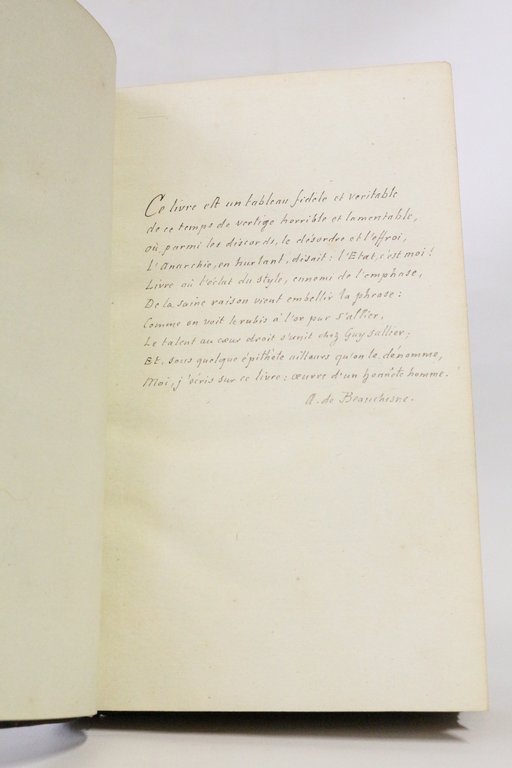 Ce livre est un tableau fidèle et veritable
de ce temps de vertige horrible et lamentable,
où parmi les discords, le désordre et l'effroi,
L'Anarchie, en hurlant, disait : l'Etat, c'est moi !
Livre où l'éclat du style, ennemi de l'emphase,
De la saine raison vient embellir la phrase :
Comme on voit le rubis à l'or pur s'allier,
Le talent au cœur droit s'unit chez Guy sallier ;
Et, sous quelque épithète ailleurs qu'on le dénomme,
Moi, j'écris sur ce livre : œuvre d'un honnête homme.
A. de Beauchesne.